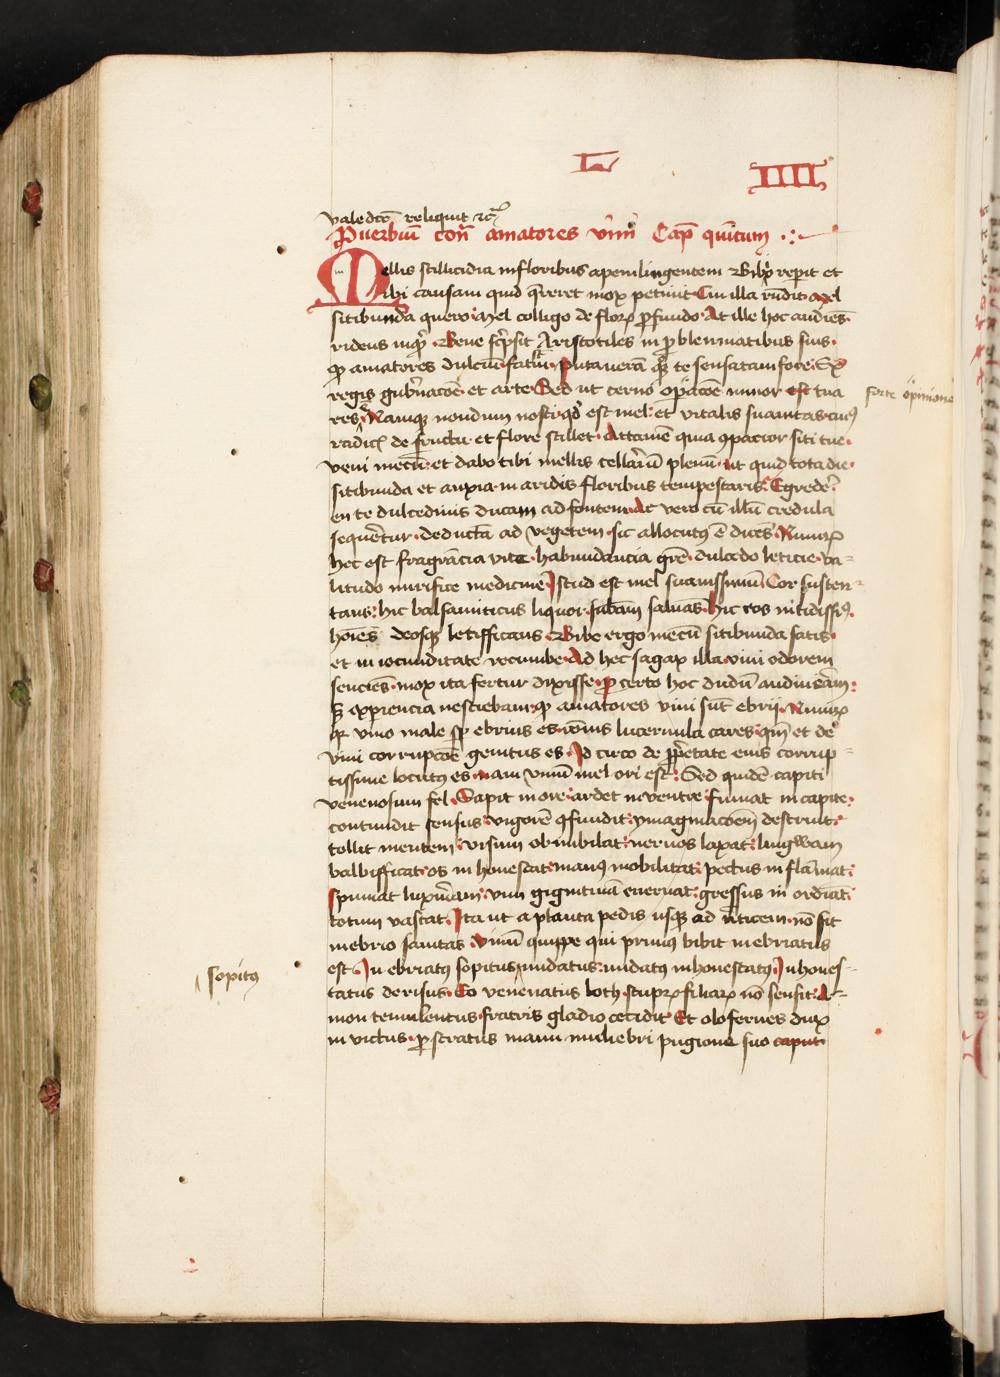 L
IIII
valedcōe reliquit ⁊cͣ
Puerbiū contͣ amatores vini Capͫ quītum
Mellis stillicidia in floribus apem lingentem Bibꝰ reperit et
ibi causam quid q̄reret mox petiuit Cui illa rñdit mel
sitibunda quero mel colligo de floꝝ ꝓfundo At ille hoc audiēs
ridens inqͥt Bene scͥpsit Aristotiles in ꝓbleumatibus suis
ꝙ amatores dulciū fatui putauerā qͥdē te sensatam fore Sꝫ
regis gub̄nacōe et arte Sed ut cerno opīacōe minor est tua
forte opinione
res Namqꝫ nondum nosti qͥd est mel et vitalis suauitas cuiꝰ
radicꝫ de fructu et flore stillet Attamē quia ꝯpacior siti tue
veni mecū et dabo tibi mellis cellariū plenū ut quid tota die
sitibunda et anxia in aridis floribus tempestaris Egredeꝛ
en te dulcedinis ducam ad fontem Ac vero cū illū credula
sequeretur deducta ad vegetem sic allocutꝰ ē dicēs Nimiꝝ
hec est fragrācia vite habundancia gr̄e dulcedo leticie va
litudo mirifice medicine Istud est mel suauissimū Cor susten
tans hic balsamiticus liquor subā saluās hic ros nitidissiꝰ
hoies deosqꝫ letifficans Bibe ergo mecū sitibunda satis
et in iocunditate recumbe Ad hec sagax illa vini odorem
senciēs mox ita fertur dixisse ꝓ certo hoc dudū audiueram
sꝫ exp̄iencia nesciebam ꝙ amatores vini sūt ebrij Nimiꝝ
qꝛ vino male sꝑ ebrius es rōnis lucernula cares qm̄ et de
vini corrupcōe genitus es Id circo de ꝓprietate eius corrup
tissime locutꝰ es nam vinū mel ori est Sed quidē capiti
venenosum fel Sapit in ore ardet in ventre fumat in capite
contundit sensus vigorē ꝯfundit ymaginacoem destruit
tollit mentem visum obnubilat neruos laxat lingwam
balbifficat os inhonestat manꝰ mobilitat pectus inflāmat
spumat luxuriam vim gignitiuā eneruat gressus inordīat
totum vastat Ita ut a planta pedis usqꝫ ad v̄ticem nō sit
in ebrio sanitas vinū quippe qui primꝰ bibit inebriatus
est Inebriatꝰ sopitus nudatus nudatꝰ inhonestatꝰ Inhones
sopitꝰ
tatus derisus Eo venenatus loth stupꝝ filiaꝝ nō sensit A
mon temulentus fratris gladio cecidit Et olofernes dux
inuictus ꝓstratus manu muliebri pugione suo caput